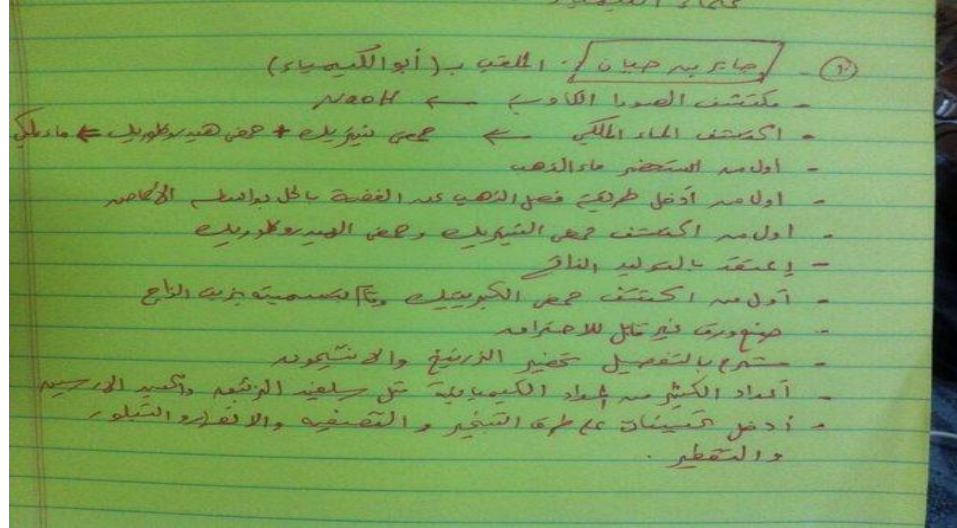 علماء الكيمياء
١٠- جابر بن حيان : الملقب ب (أبو الكيمياء)
- مكتشف الصودا الكاوية ← NaOH
- اكتشف الماء الملكي ← حمض نيتريك + حمض هيدروكلوريك ← ماء ملكي
- أول من استحضر ماء الذهب
- أول من أدخل طريقة فصل الذهب عن الفضة بالحل بواسطة الأحماض
- أول من اكتشف حمض النيتريك وحمض الهيدروكلوريك
- إعتقد بالتوليد الذاتي
- أول من اكتشف حمض الكبريتيك وقام بتسميته بزيت الزاج
- صنع ورق غير قابل للاحتراق
- شرح بالتفصيل تحضير الزرنيخ والانتيمون
- أعداد الكثير من المواد الكيميائية مثل سلفيد الزئبق وأكسيد الارسين
- أدخل تحسينات على طرق التبخير و التصفيه والانصهار والتبلور
والتقطير .